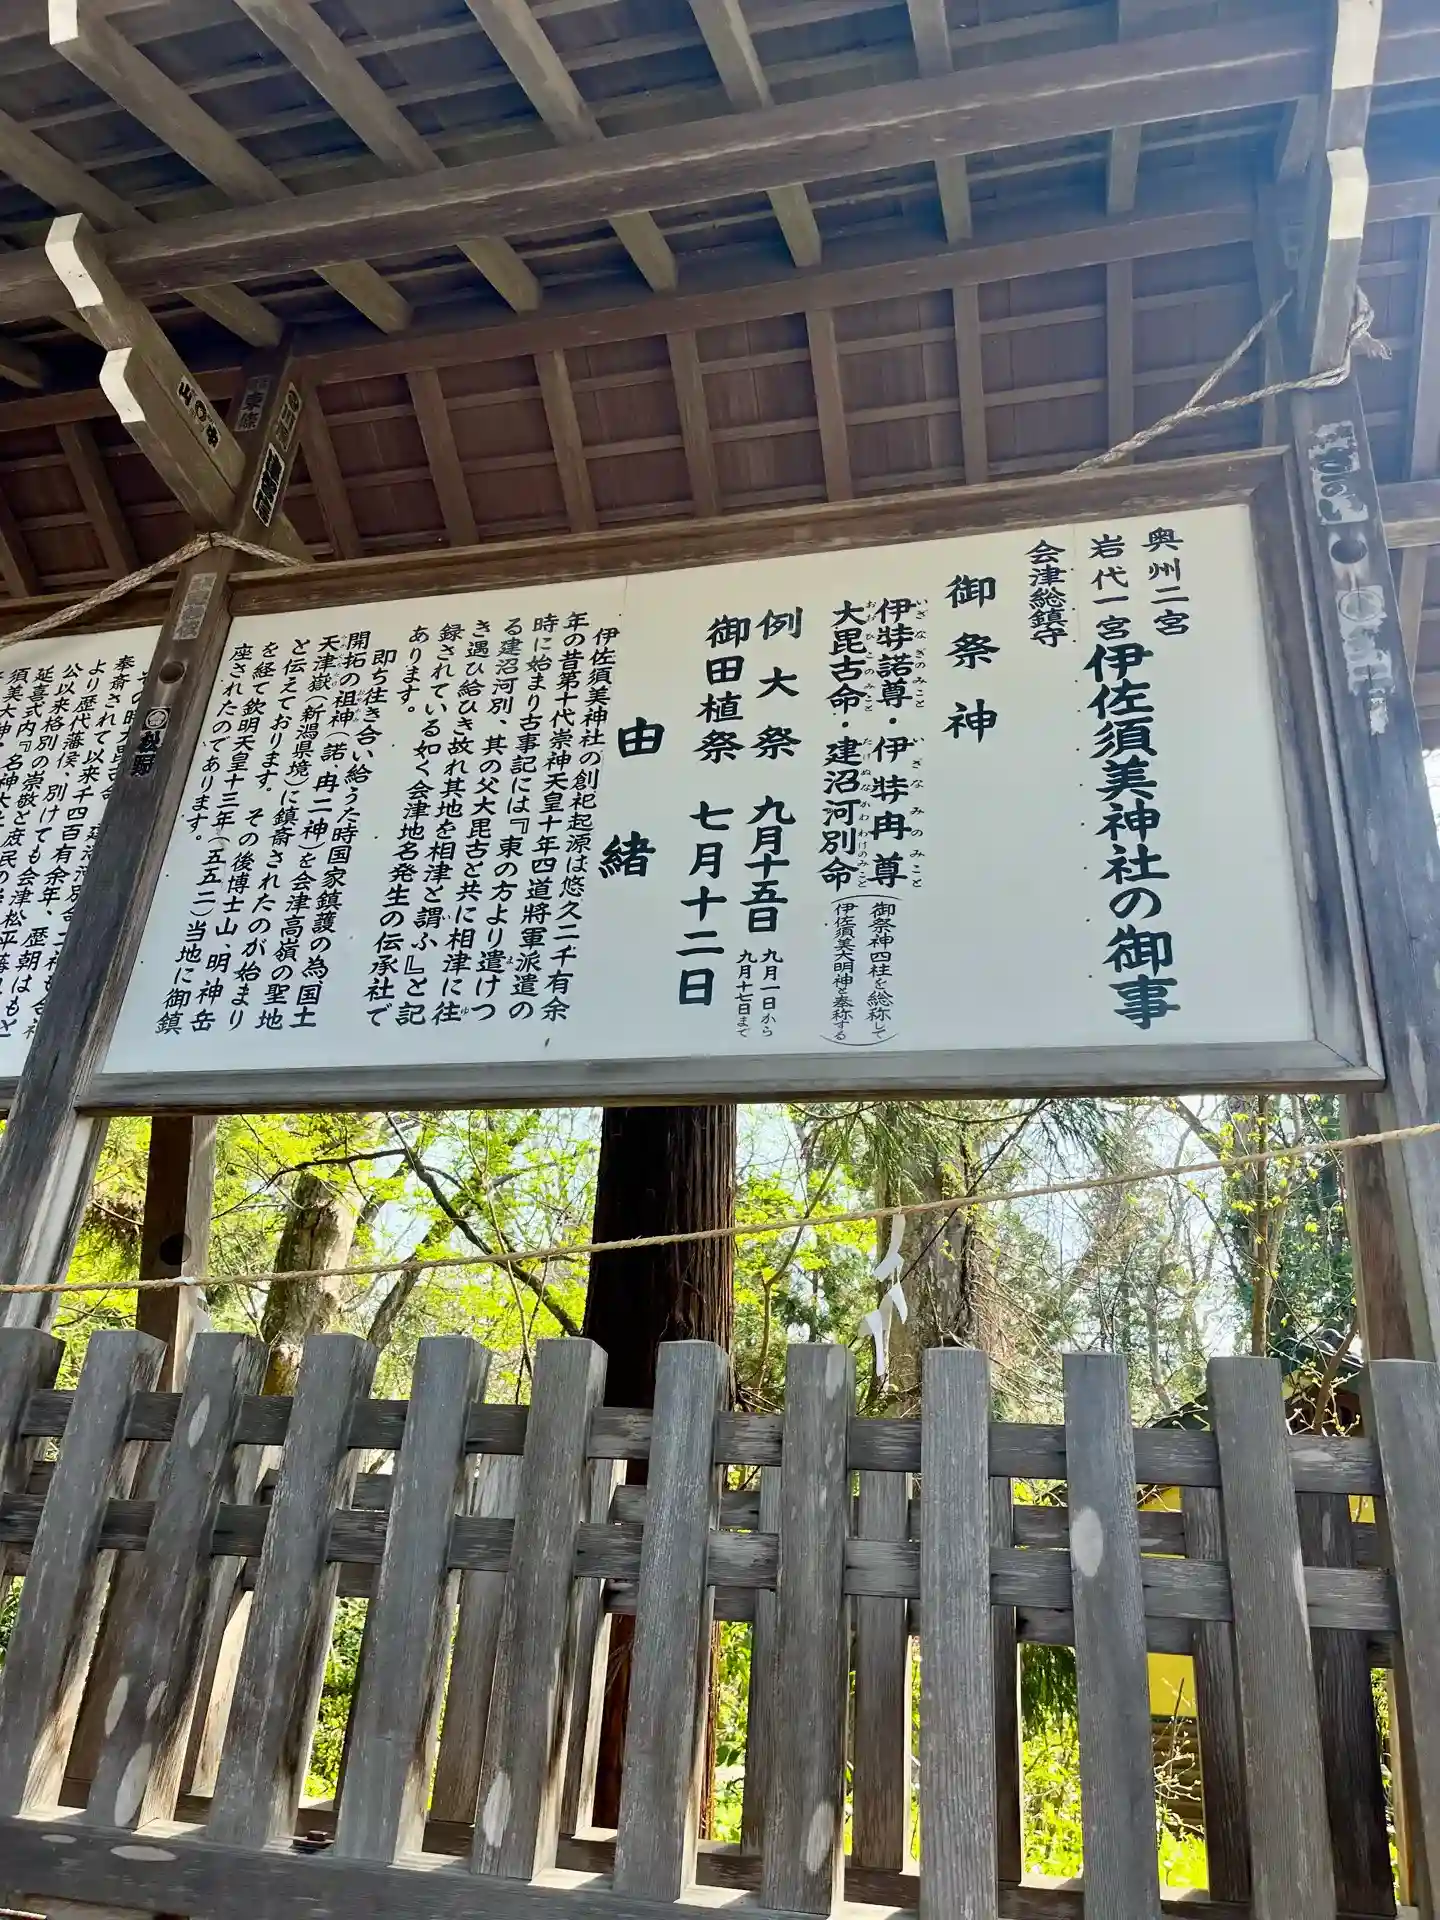 奥州二宮
岩代一宮
会津総鎮守
伊佐須美神社の御事
御祭神
伊弉諾尊・伊弉冉尊
いざなぎのみこと
いざなみのみこと
大毘古命・建沼河別命
おおひこのみこと
たけぬなかわわけのみこと
(御祭神四柱を総称して
伊佐須美大明神と奉称する)
例大祭 九月十五日
九月一日から
九月十七日まで
御田植祭 七月十二日
由緒
伊佐須美神社の創祀起源は悠久二千有余
年の昔第十代崇神天皇十年四道將軍派遣の
時に始まり古事記には『東の方より遣けつ
る建沼河別、其の父大毘古と共に相津に往
き遇ひ給ひき故れ其地を相津と謂ふ』と記
録されている如く会津地名発生の伝承社で
あります。
即ち往き合い給うた時国家鎮護の為、国土
開拓の祖神(諾、冉二神)を会津高嶺の聖地
天津嶽(新潟県境)に鎮斎されたのが始まり
と伝えております。その後博士山、明神岳
を経て欽明天皇十三年(五五二)当地に御鎮
座されたのであります。
奉斎されて以来千四百有余年、歴朝はもと
より歴代藩侯、別けても会津松平藩
公以来格別の崇敬と庶民の
延喜式内『名神大
須美大神・
松野
東條